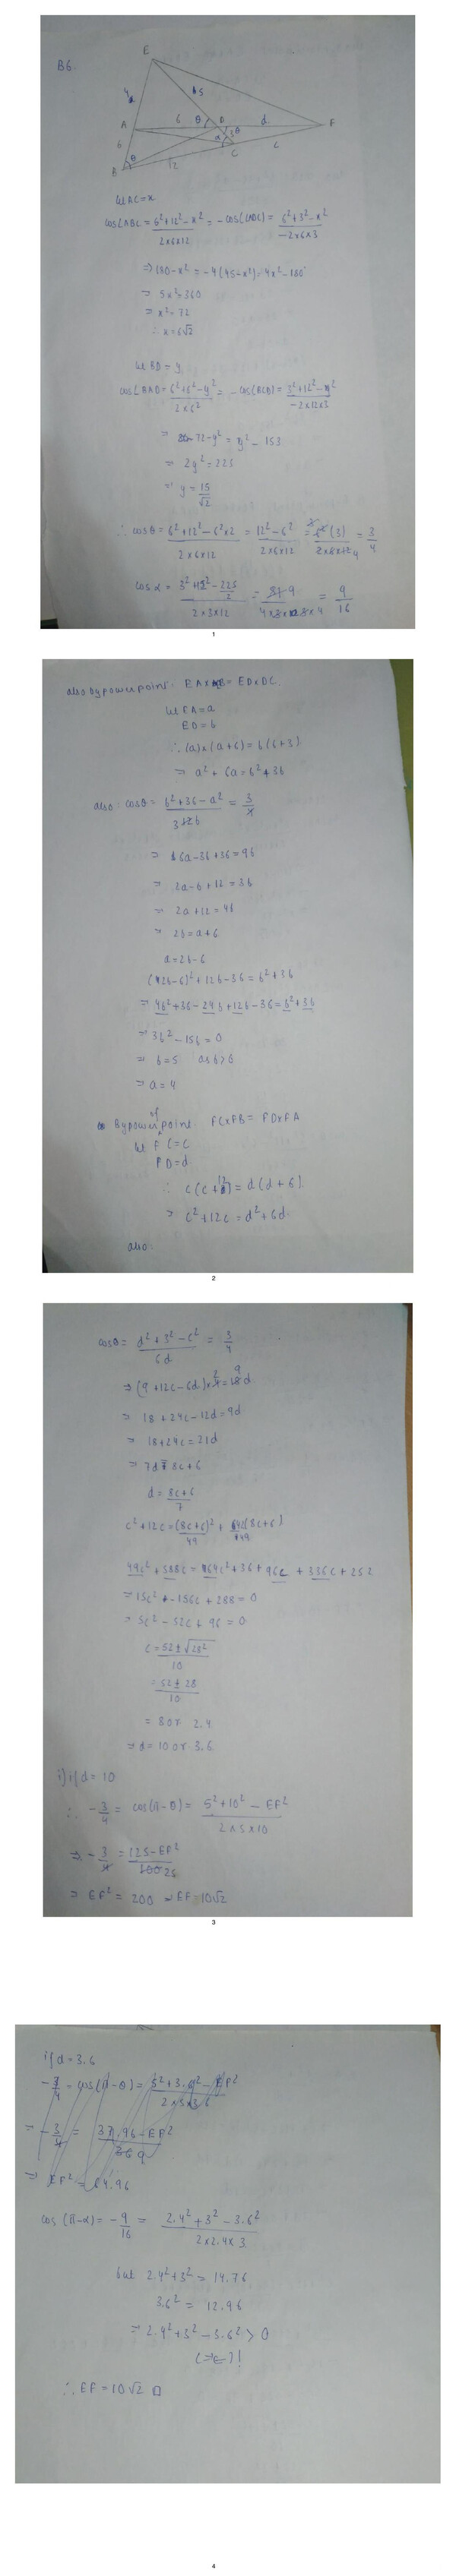 B6.
E
4
6.5
A
6
θ
D
d
F
6
3
θ
α
C
c
B
θ
12
Let AC = x
cos∠ABC = 6²+12²-x² / 2x6x12 = -cos(∠ADC) = 6²+3²-x² / -2x6x3
⇒ 180-x² = -4(45-x²) = 4x²-180
⇒ 5x²=360
⇒ x²=72
∴ x=6√2
let BD = y
cos∠BAD = 6²+6²-y² / 2x6² = -cos(BCD) = 3²+12²-y² / -2x12x3
⇒ 72-y² = y²-153
⇒ 2y²=225
⇒ y = 15/√2
∴ cosθ = 6²+12²-6²x2 / 2x6x12 = 12²-6² / 2x6x12 = 6²(3) / 2x6x12 4 = 3/4
cosα = 3²+12²-225/2 / 2x3x12 = 81 9 / 4x3x12x4 = 9/16
1
also by power point: EAxEB = EDxDC.
let EA=a
ED=b
∴ (a)x(a+6)=b(b+3)
⇒ a²+6a=b²+3b
also: cosθ = b²+36-a² / 3 12b = 3/4
⇒ 6a-3b+36=9b
⇒ 2a-b+12=3b
⇒ 2a+12=4b
⇒ 2b=a+6
a=2b-6
(2b-6)²+12b-36=b²+3b
⇒ 4b²+36-24b+12b-36=b²+3b
⇒ 3b²-15b=0
⇒ b=5 as b>0
⇒ a=4
By power of point: FCxFB = FDxFA
let FC=c
FD=d
∴ c(c+12)=d(d+6)
⇒ c²+12c=d²+6d
also:
2
cosθ = d²+3²-c² / 6d = 3/4
⇒ (9+12c-6d)x4 2 = 18d 9
⇒ 18+24c-12d=9d
⇒ 18+24c=21d
⇒ 7d=8c+6
d = 8c+6 / 7
c²+12c = (8c+6)² / 49 + 42(8c+6) / 49
49c²+588c = 64c²+36+96c+336c+252
⇒ 15c²-156c+288=0
⇒ 5c²-52c+96=0
c = 52±√28² / 10
= 52±28 / 10
= 8 or 2.4
⇒ d=10 or 3.6
i) if d=10
∴ -3/4 = cos(π-θ) = 5²+10²-EF² / 2x5x10
⇒ -3/4 = 125-EF² / 100 25
⇒ EF²=200 ⇒ EF=10√2
3
if d=3.6
-3/4 = cos(π-θ) = 5²+3.6²-EF² / 2x5x3.6
⇒ -3/4 = 37.96-EF² / 36 9
⇒ EF² = 64.96
cos(π-α) = -9/16 = 2.4²+3²-3.6² / 2x2.4x3
but 2.4²+3² = 14.76
3.6² = 12.96
⇒ 2.4²+3²-3.6² > 0
(⇒⇐)!
∴ EF=10√2 □
4